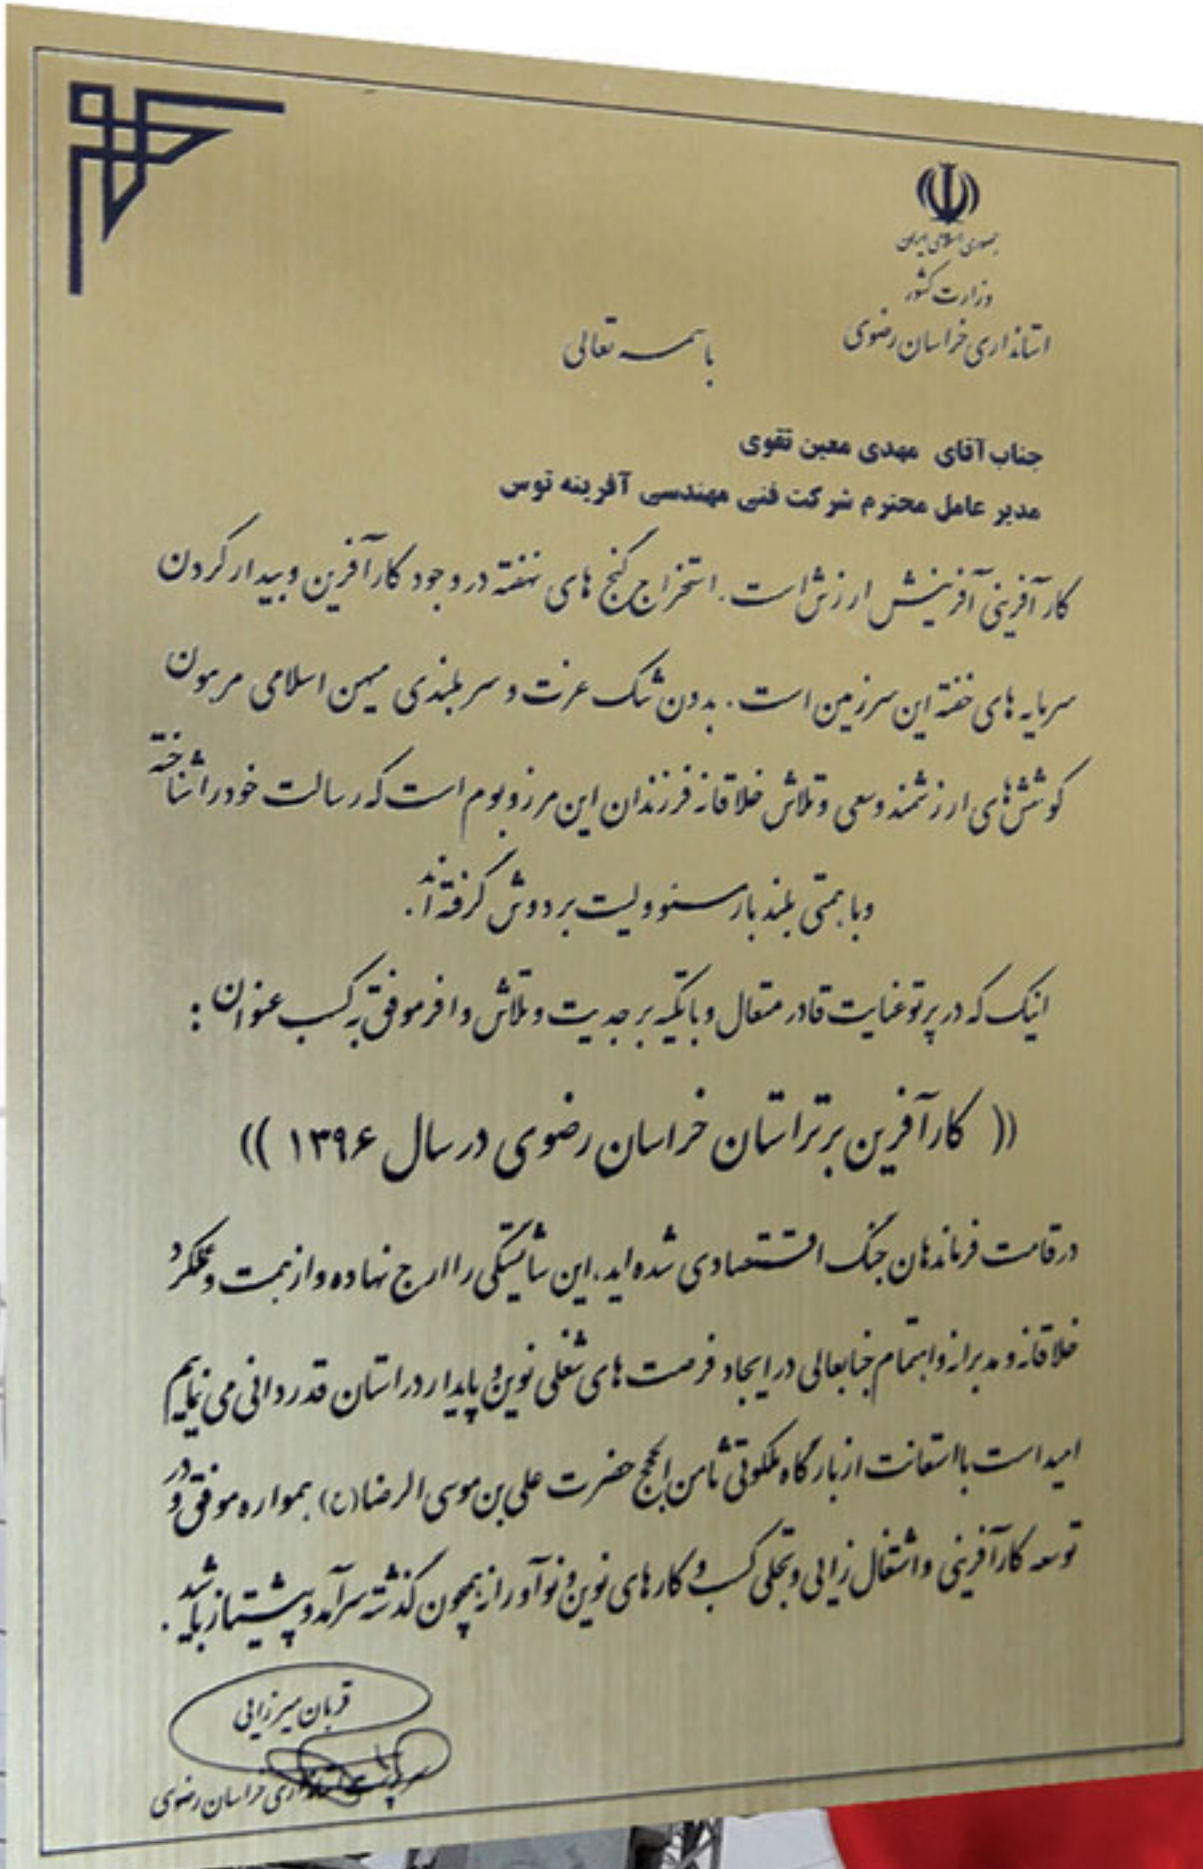 جمهوری اسلامی ایران
وزارت کشور
استانداری خراسان رضوی
باسمه تعالی
جناب آقای مهدی معین تقوی
مدیر عامل محترم شرکت فنی مهندسی آفرینه توس
کارآفرینی آفرینش ارزش است. استخراج گنج های نهفته در وجود کارآفرین و بیدار کردن
سرمایه های خفته این سرزمین است. بدون شک عزت و سربلندی میهن اسلامی مرهون
کوشش های ارزشمند وسعی و تلاش خلاقانه فرزندان این مرز و بوم است که رسالت خود را شناخته
و با همتی بلند بار مسئوولیت بر دوش گرفته اند.
اینک که در پرتو عنایت قادر متعال و با تکیه بر جدیت و تلاش وافر موفق به کسب عنوان :
(( کارآفرین برتر استان خراسان رضوی در سال ۱۳۹۶ ))
در قامت فرماندهان جنگ اقتصادی شده اید، این شایستگی را ارج نهاده و از همت و عملکرد
خلاقانه و مدبرانه و اهتمام جنابعالی در ایجاد فرصت های شغلی نوین و پایدار در استان قدردانی می نمایم
امید است با استعانت از بارگاه ملکوتی ثامن الحجج حضرت علی بن موسی الرضا (ع) همواره موفق و در
توسعه کارآفرینی و اشتغال زایی و تجلی کسب و کارهای نوین و نوآورانه همچون گذشته سرآمد و پیشتاز باشید.
قربان میرزایی
سرپرست استانداری خراسان رضوی